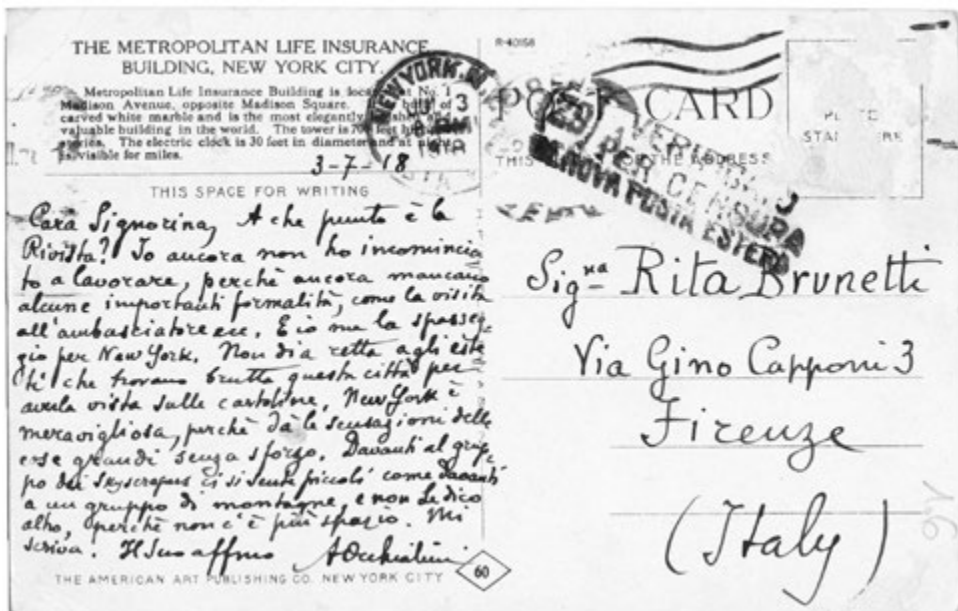 THE METROPOLITAN LIFE INSURANCE
BUILDING, NEW YORK CITY.
Metropolitan Life Insurance Building is located at No. 1
Madison Avenue, opposite Madison Square. built of
carved white marble and is the most elegantly and
valuable building in the world. The tower is 700 feet high
stories. The electric clock is 30 feet in diameter and at night
is visible for miles.
3-7-18
THIS SPACE FOR WRITING
Cara Signorina, A che punto è la
Rivista? Io ancora non ho incomincia
to a lavorare, perchè ancora mancano
alcune importanti formalità, come la visita
all'ambasciatore ecc. E io me la passeg-
gio per New York. Non dia retta agli este
ti che trovano brutta questa città per
averla vista sulle cartoline. New York è
meravigliosa, perchè dà le sensazioni delle
cose grandi senza sforzo. Davanti al grup-
po dei skyscrapers ci si sente piccoli come davanti
a un gruppo di montagne, e non Le dico
altro, perchè non c'è più spazio. Mi
scriva. Il Suo affmo AOcchialini
THE AMERICAN ART PUBLISHING CO. NEW YORK CITY
60
R-40158
POST CARD
NEW YORK, N.Y.
3
1918
THIS FOR THE ADDRESS
PLACE
STAMP HERE
VERIFICATO
PER CENSURA
GENOVA POSTA ESTERA
Sig.na Rita Brunetti
Via Gino Capponi 3
Firenze
(Italy)